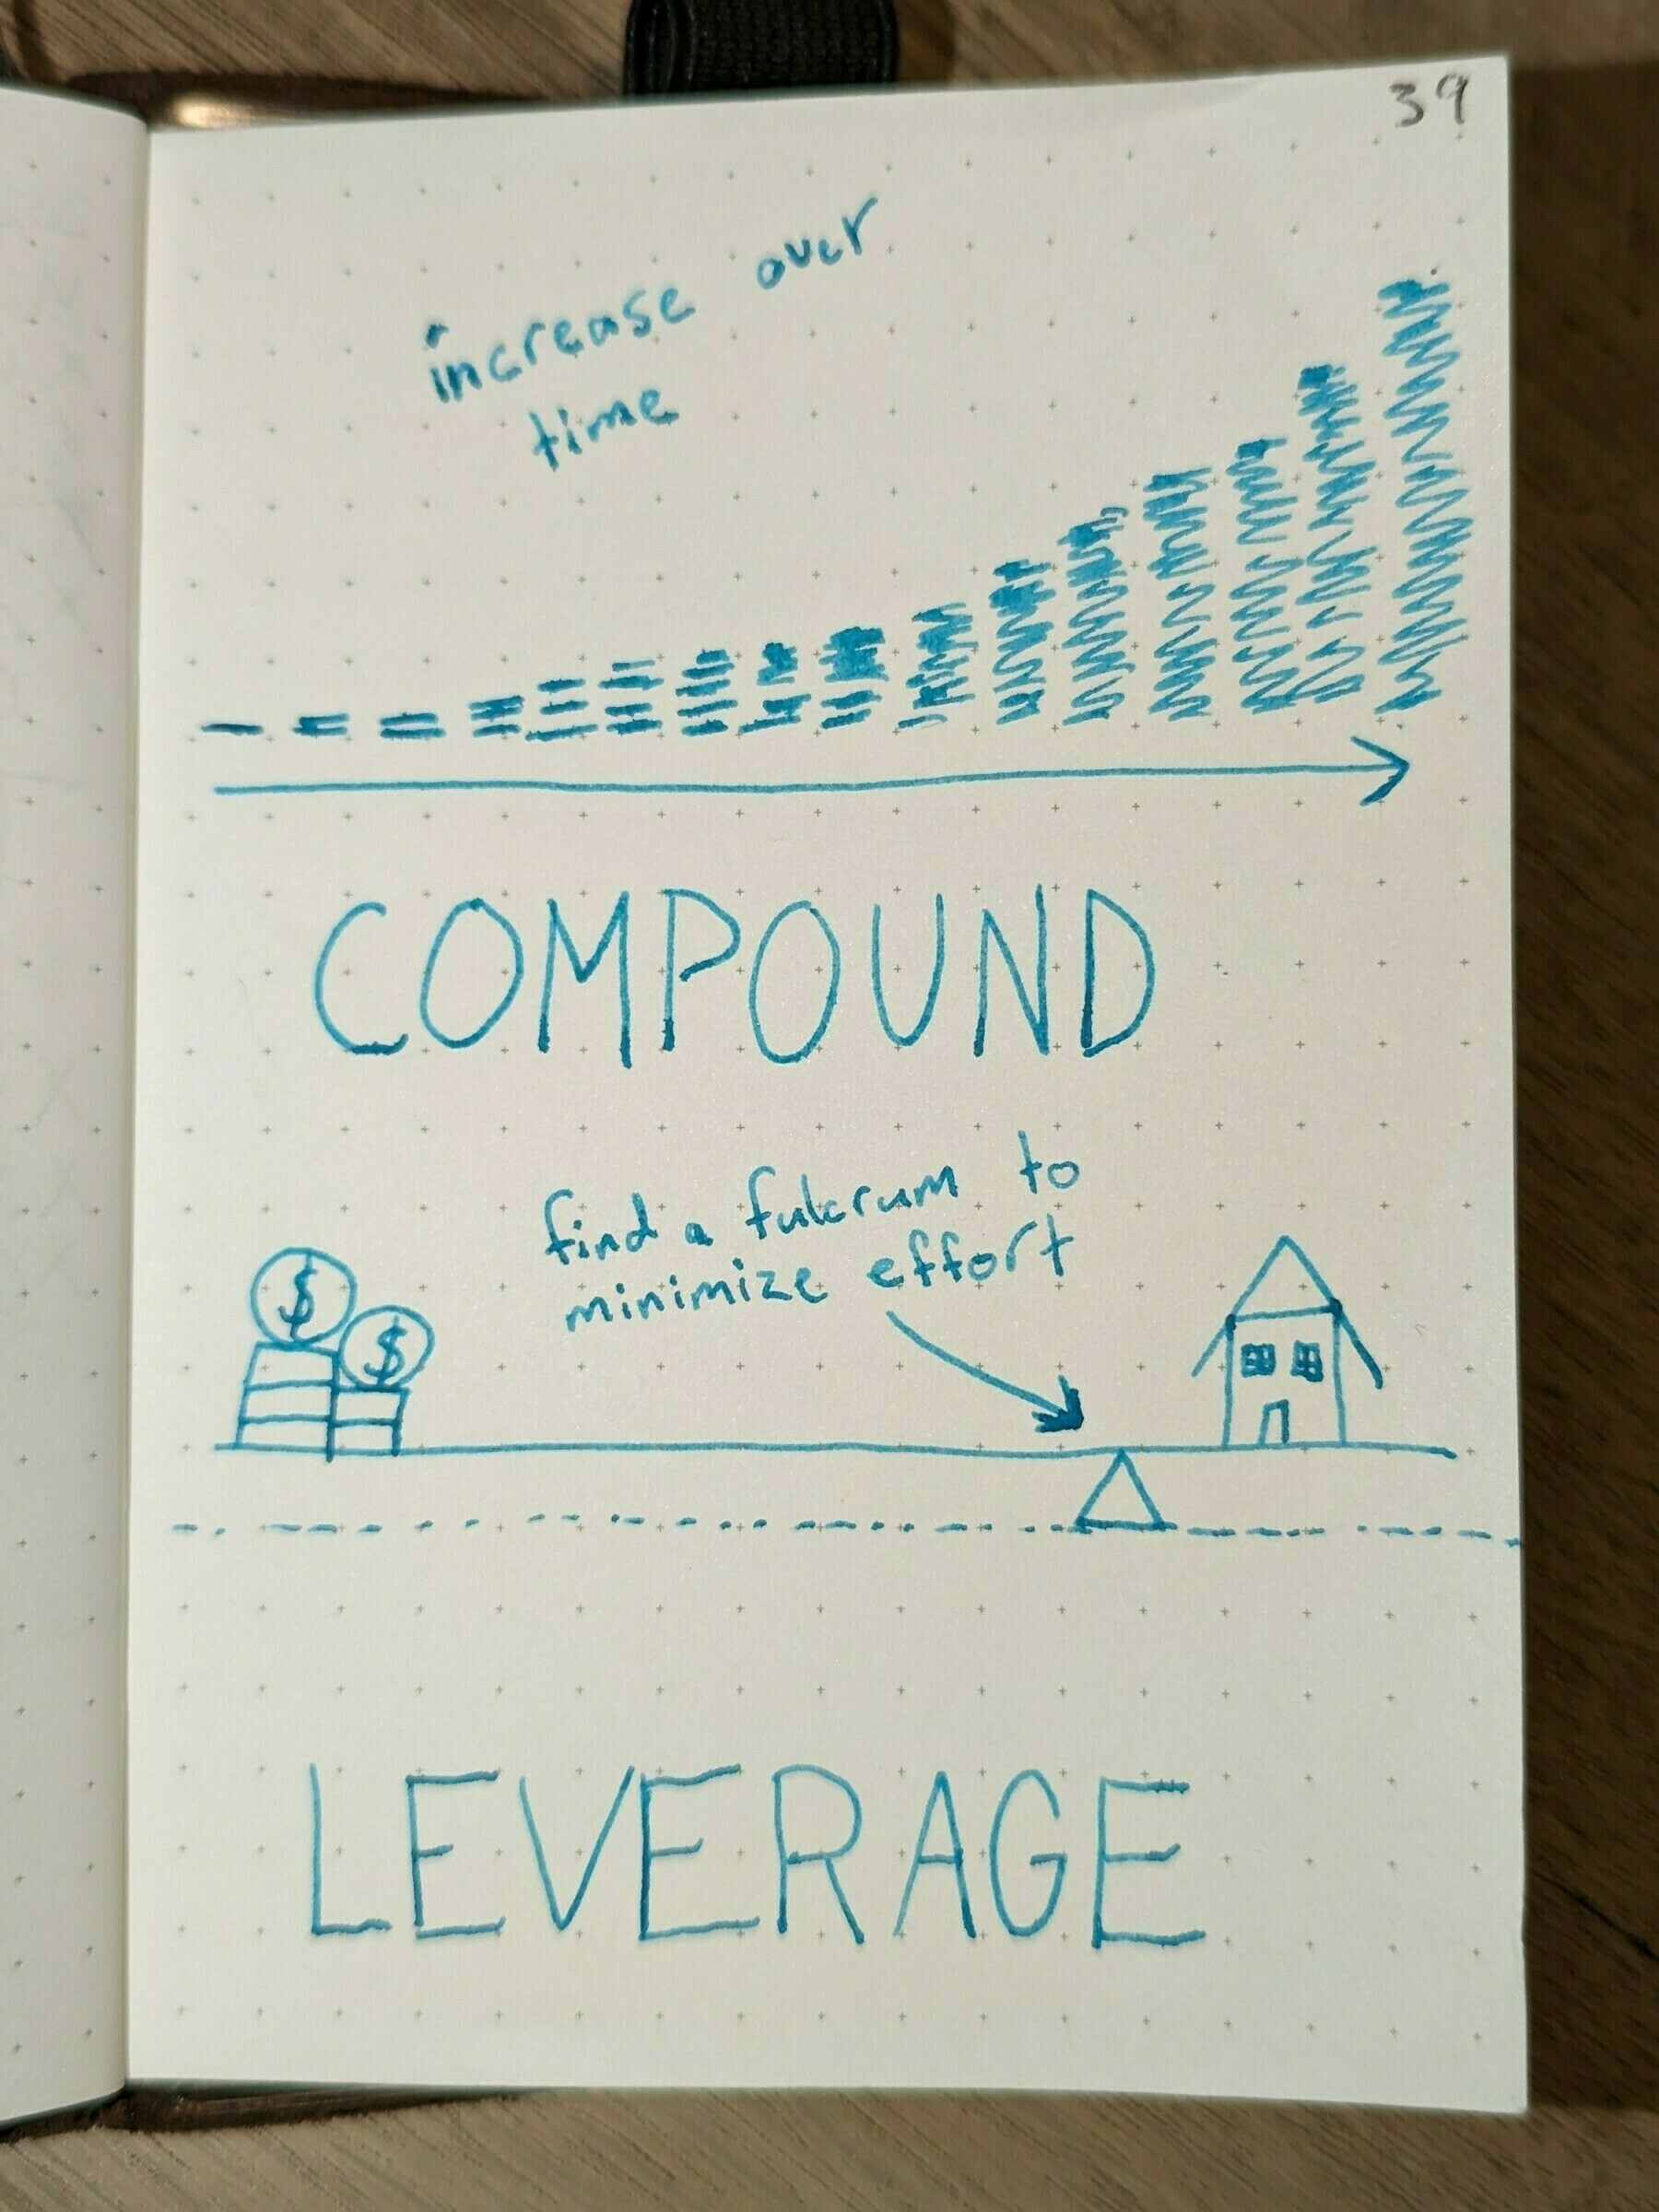 39
increase over
time
COMPOUND
find a fulcrum to
minimize effort
$
$
LEVERAGE